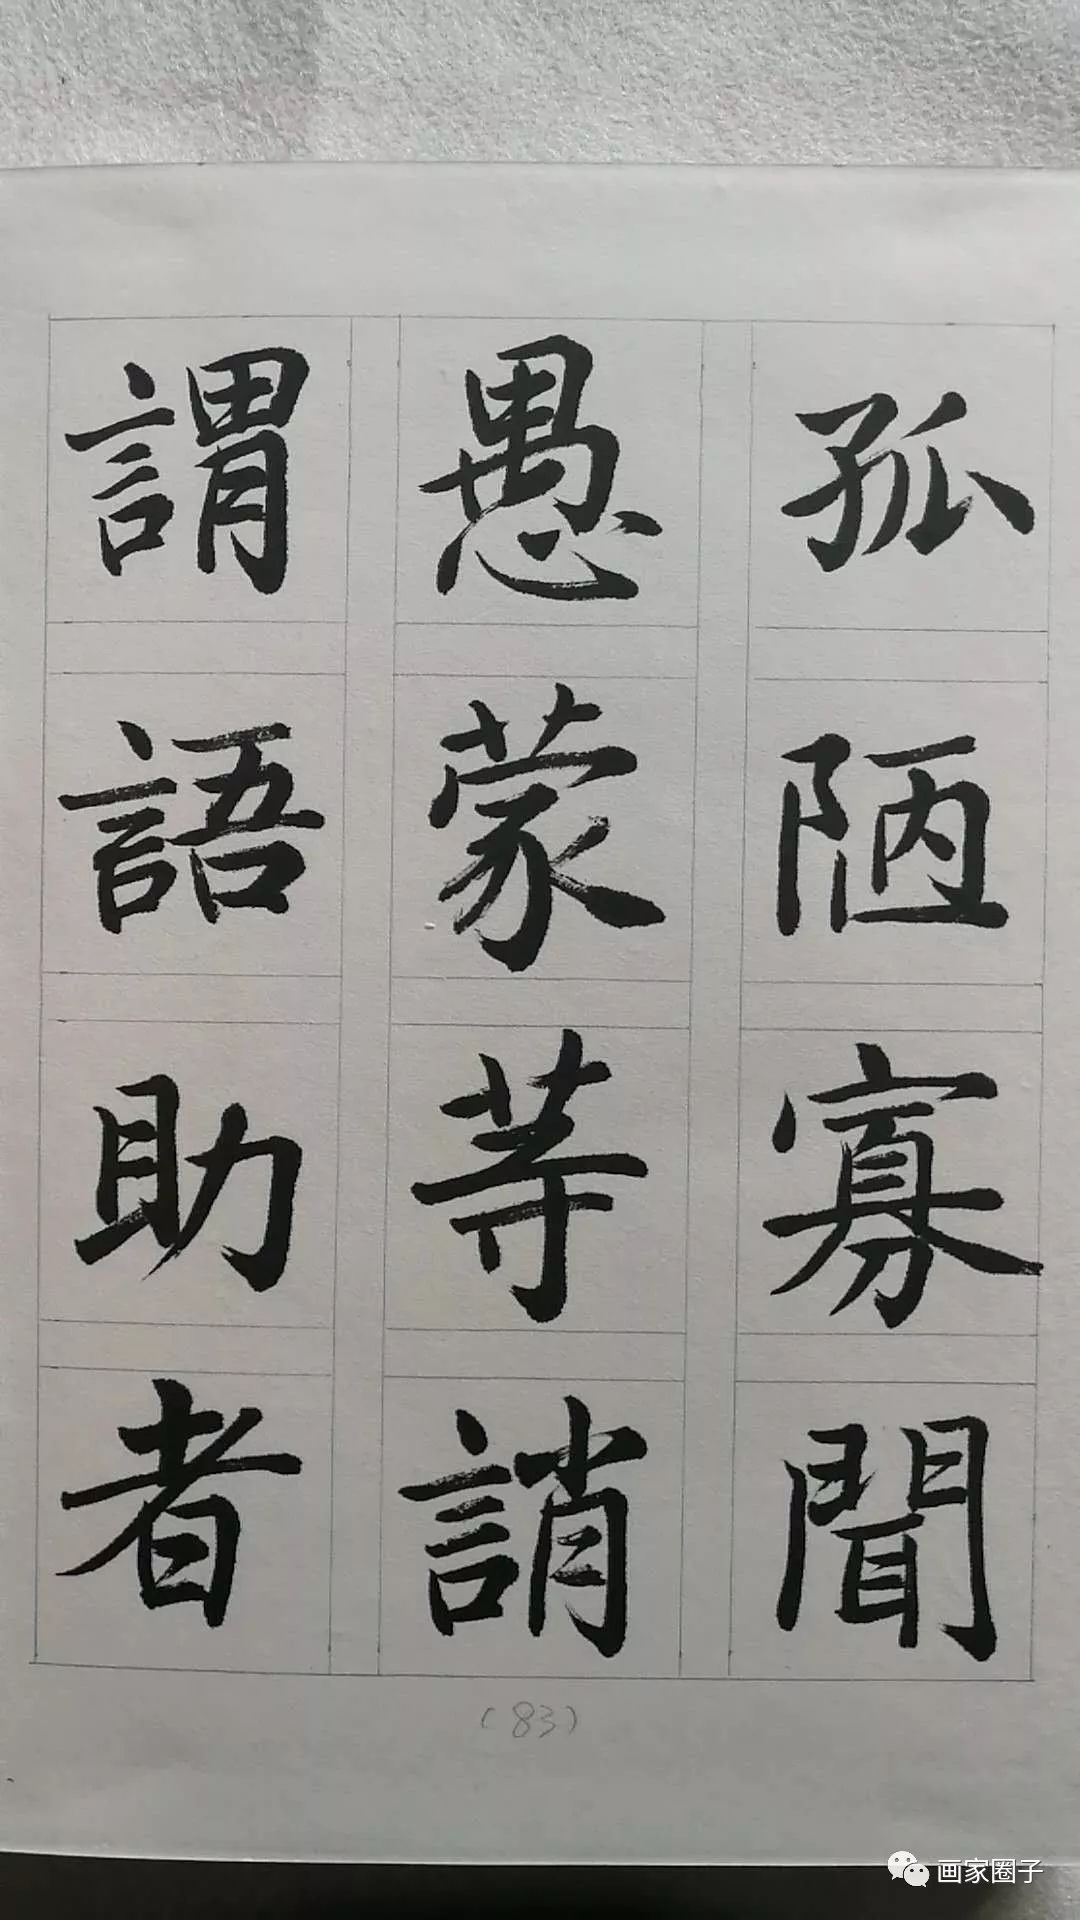 孤陋寡聞
愚蒙等誚
謂語助者
(83)
画家圈子